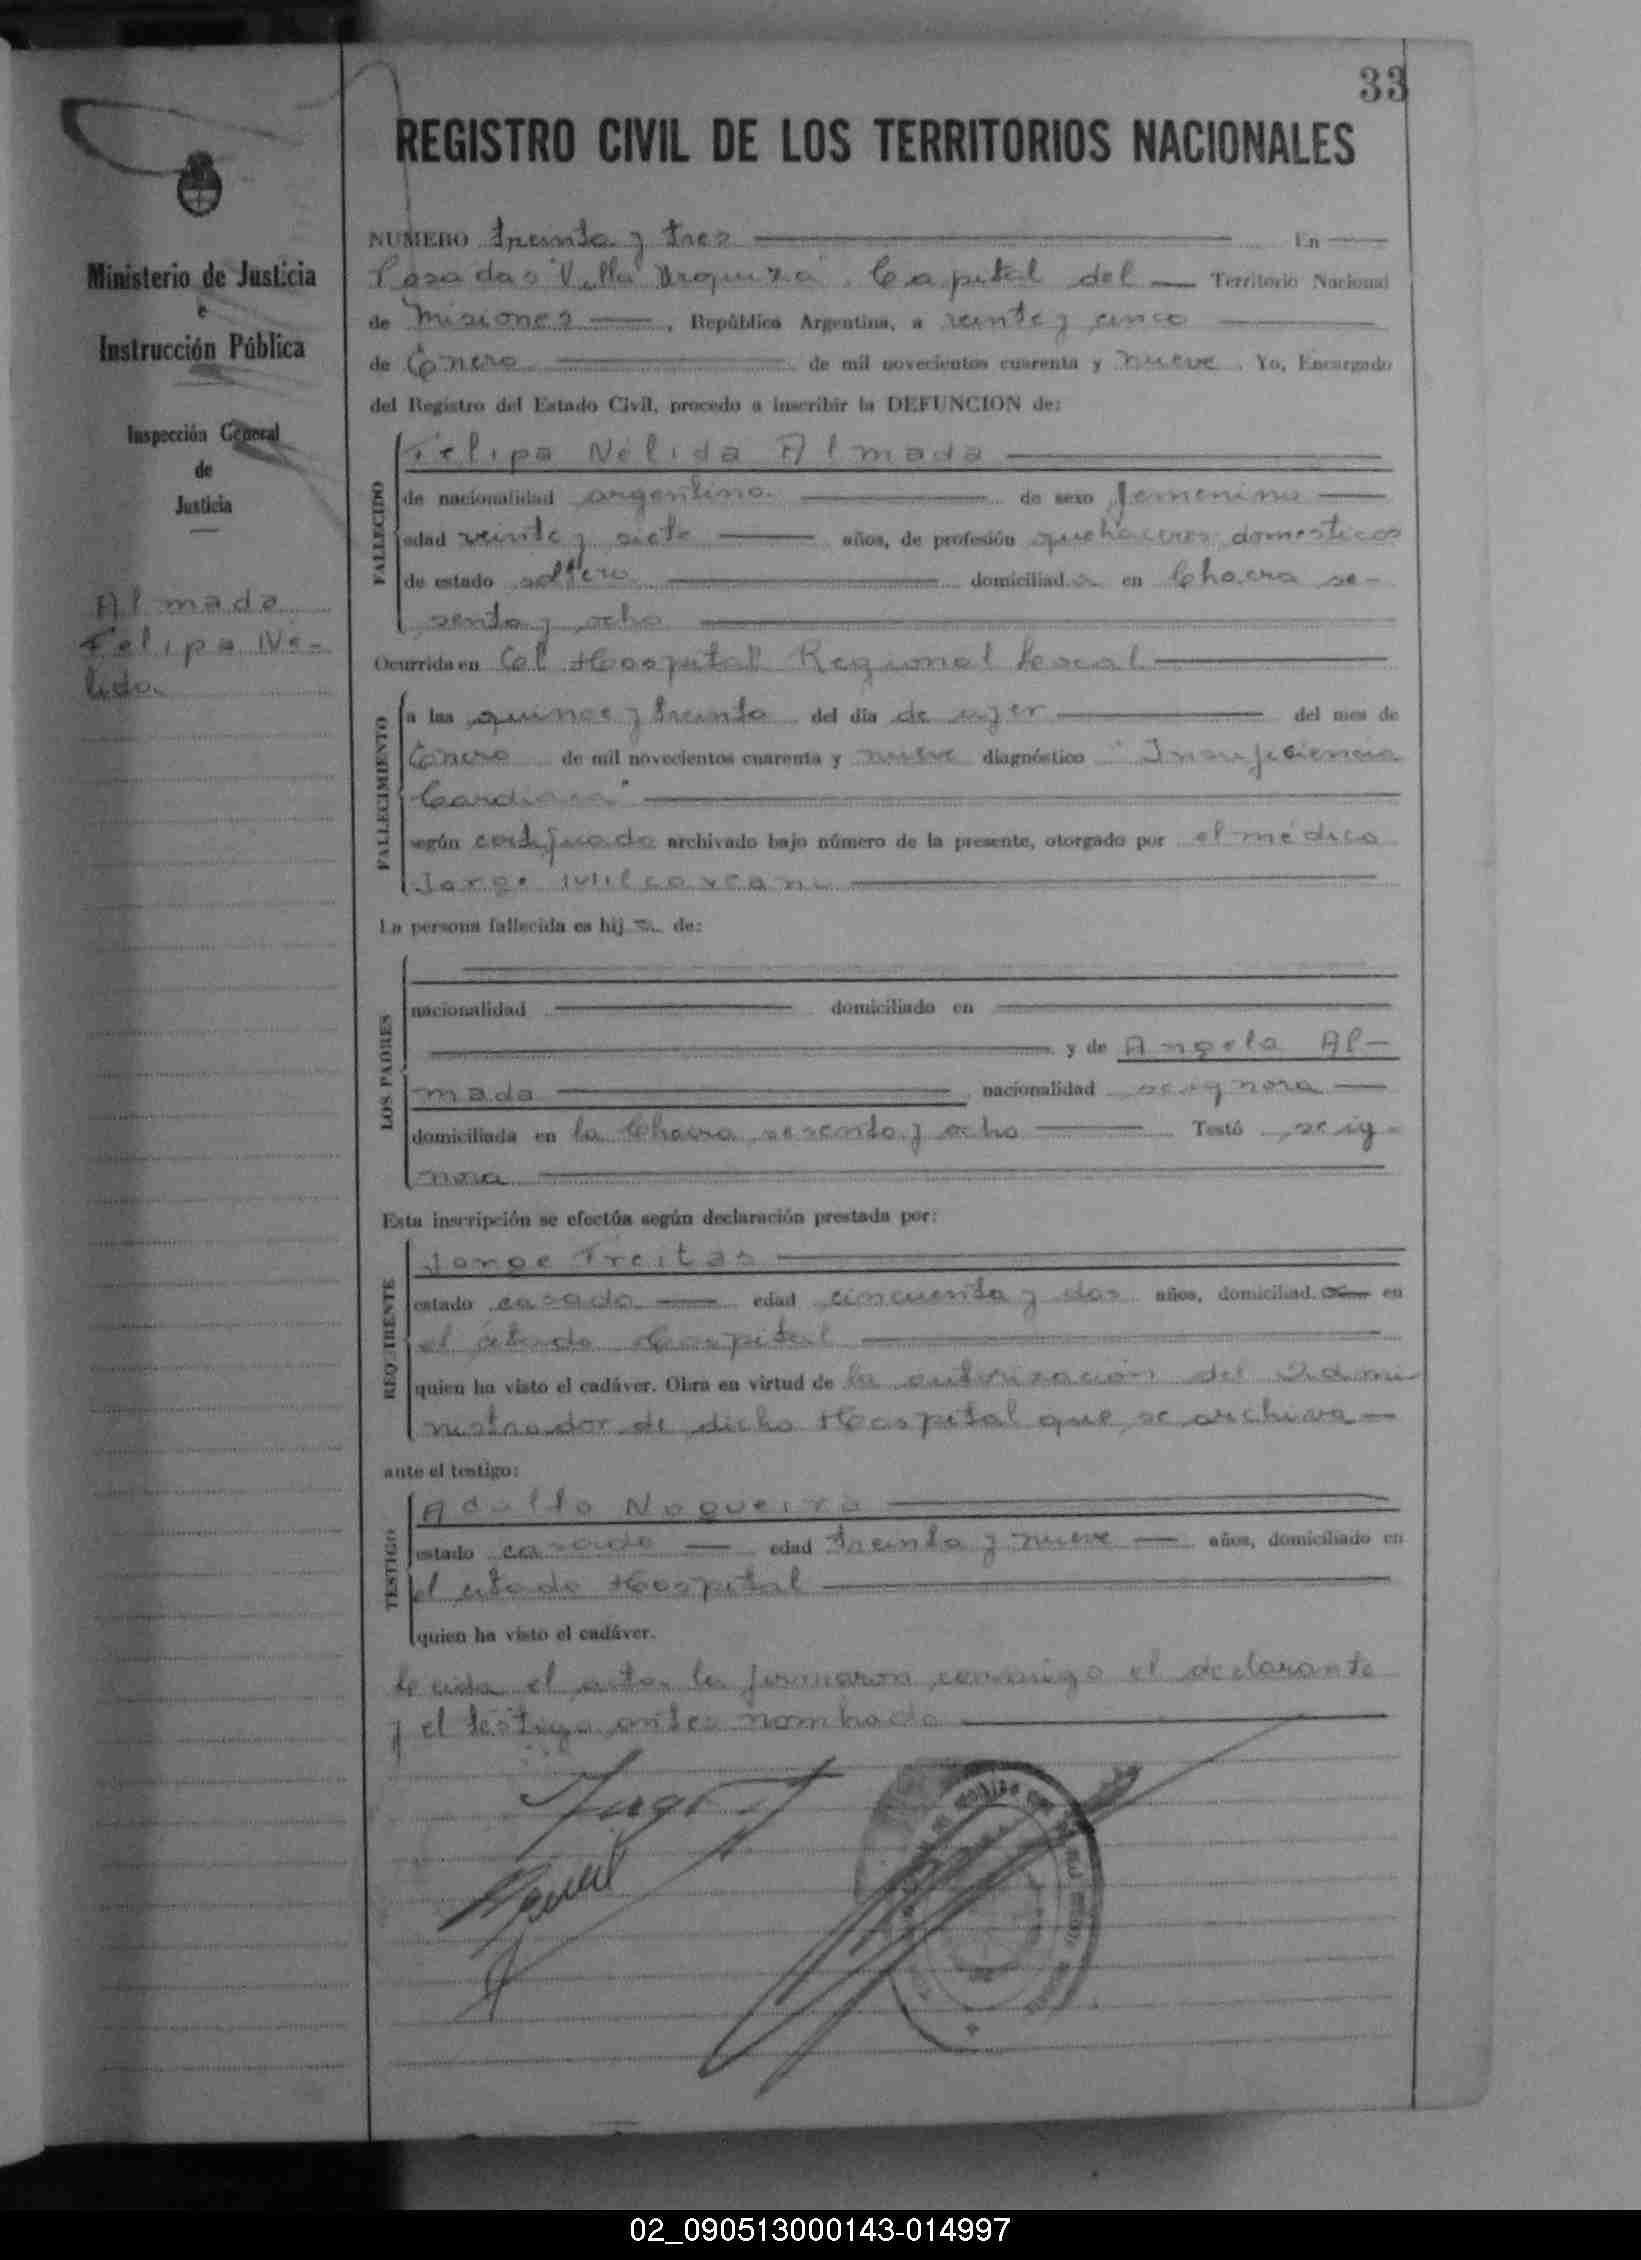 33
REGISTRO CIVIL DE LOS TERRITORIOS NACIONALES
Ministerio de Justicia
e
Instrucción Pública
Inspección General
de
Justicia
Almada
Felipa Né-
lida
NUMERO treinta y tres En
Posadas "Villa Urquiza", Capital del Territorio Nacional
de Misiones, República Argentina, a veinte y cinco
de Enero de mil novecientos cuarenta y nueve. Yo, Encargado
del Registro del Estado Civil, procedo a inscribir la DEFUNCION de:
FALLECIDO
Felipa Nélida Almada
de nacionalidad argentina de sexo femenino
edad veinte y siete años, de profesión quehaceres domesticos
de estado soltera domiciliad a en Chacra se-
senta y ocho
Ocurrida en el Hospital Regional local
FALLECIMIENTO
a las quince y treinta del día de ayer del mes de
Enero de mil novecientos cuarenta y nueve diagnóstico "Insuficiencia
Cardiaca"
según certificado archivado bajo número de la presente, otorgado por el médico
Jorge
La persona fallecida es hij a de:
LOS PADRES
nacionalidad domiciliado en
y de Angela Al-
mada nacionalidad se ignora
domiciliada en la Chacra sesenta y ocho Testó se ig-
nora
Esta inscripción se efectúa según declaración prestada por:
REQUIRENTE
Jorge Freitas
estado casado edad cincuenta y dos años, domiciliad o en
el citado Hospital
quien ha visto el cadáver. Obra en virtud de la autorización del Admi
nistrador de dicho Hospital que se archiva
ante el testigo:
TESTIGO
Adolfo Nogueira
estado casado edad treinta y nueve años, domiciliado en
el citado Hospital
quien ha visto el cadáver.
Leida el acta la firmaron conmigo el declarante
y el testigo antes nombrado
02_090513000143-014997